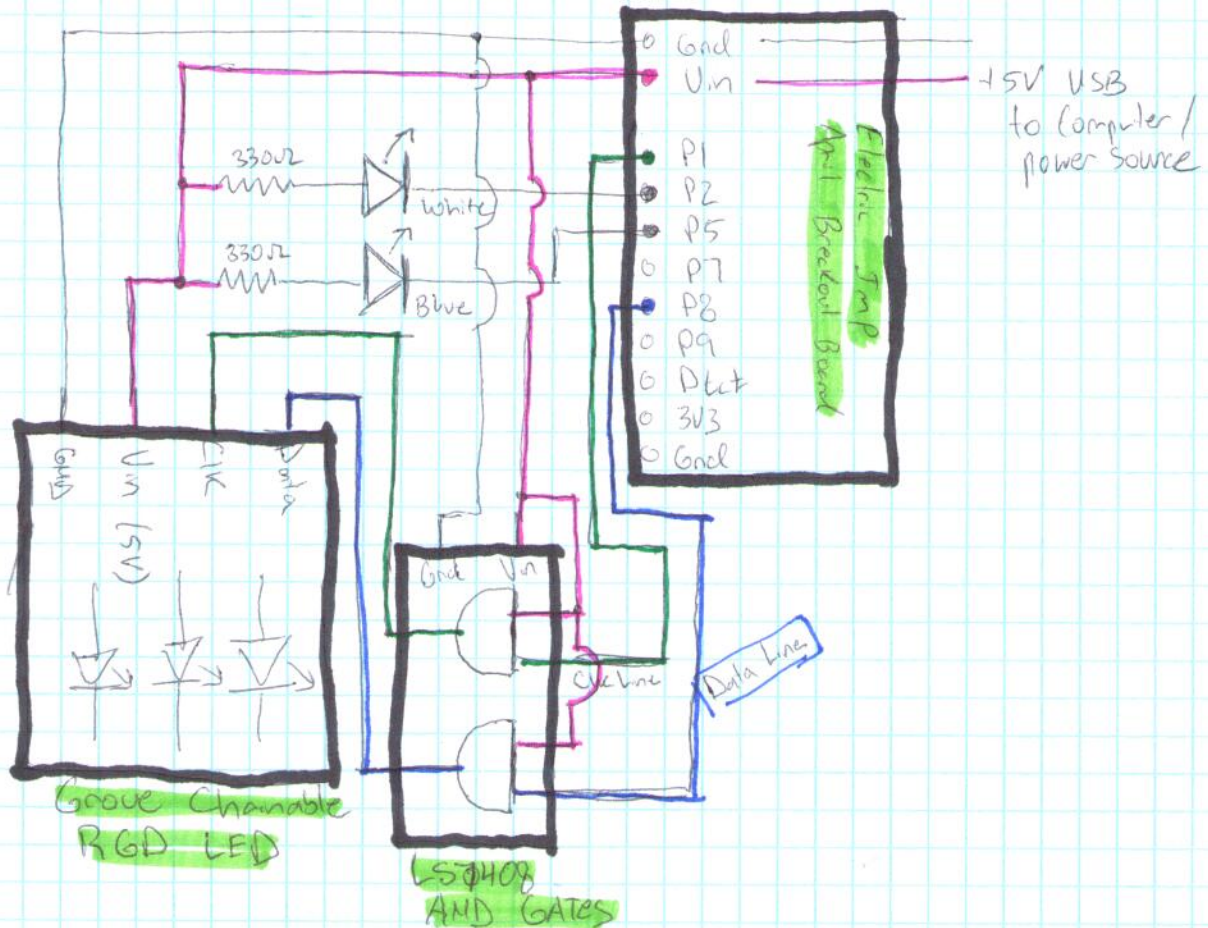 Gnd
Vin
+5V USB
to Computer/
power Source
P1
P2
P5
P7
P8
P9
Dtct
3V3
Gnd
Electric Imp
April Breakout Board
330Ω
White
330Ω
Blue
GND
Vin
(5V)
CLK
Data
Gnd
Vin
Clk Line
Data Line
Grove Chainable
RGD LED
LS7408
AND GATES